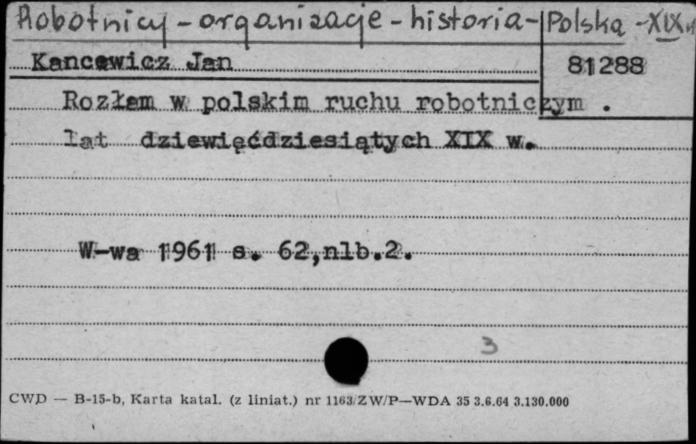 Robotnicy - organizacje - historia - Polska - XIX w.
Kancewicz Jan 81288
Rozłam w polskim ruchu robotniczym .
lat dziewięćdziesiątych XIX w.
W-wa 1961 s. 62,nlb.2.
3
CWD — B-15-b, Karta katal. (z liniat.) nr 1163/ZW/P—WDA 35 3.6.64 3.130.000